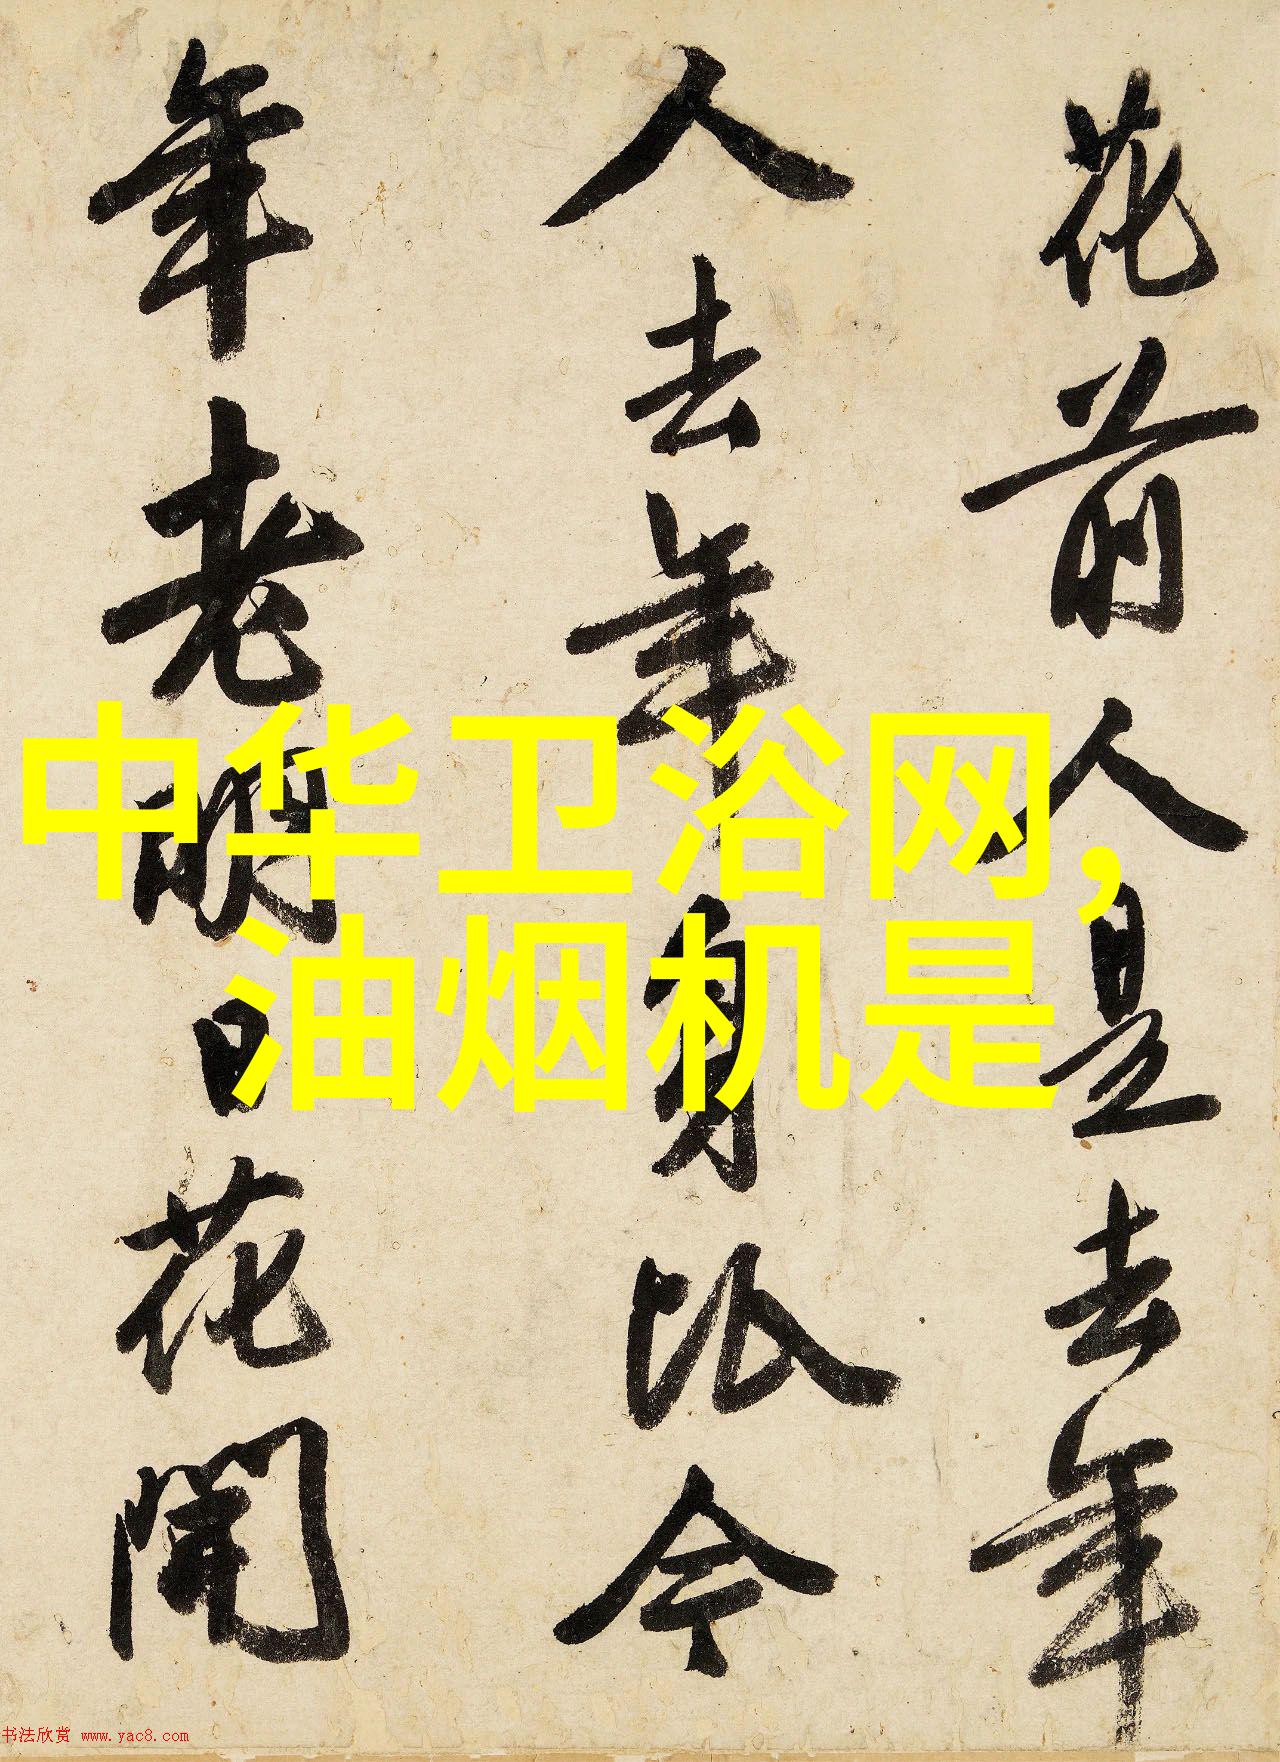 花前人是去年
人去年身比今
年老明日花開
中华卫浴网,
油烟机是
书法欣赏 www.yac8.com